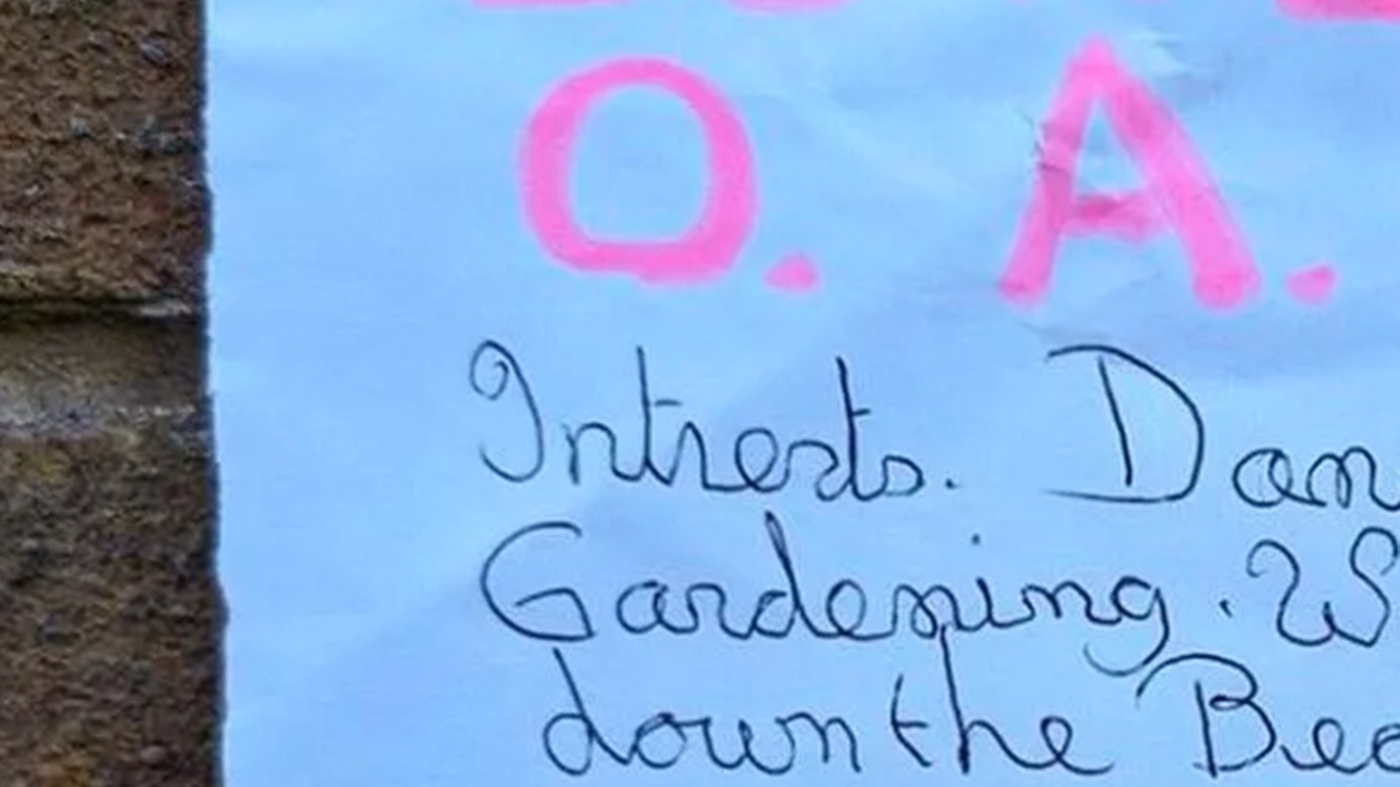 O. A.
Intrests. Dan
Gardening. W
down the Bea